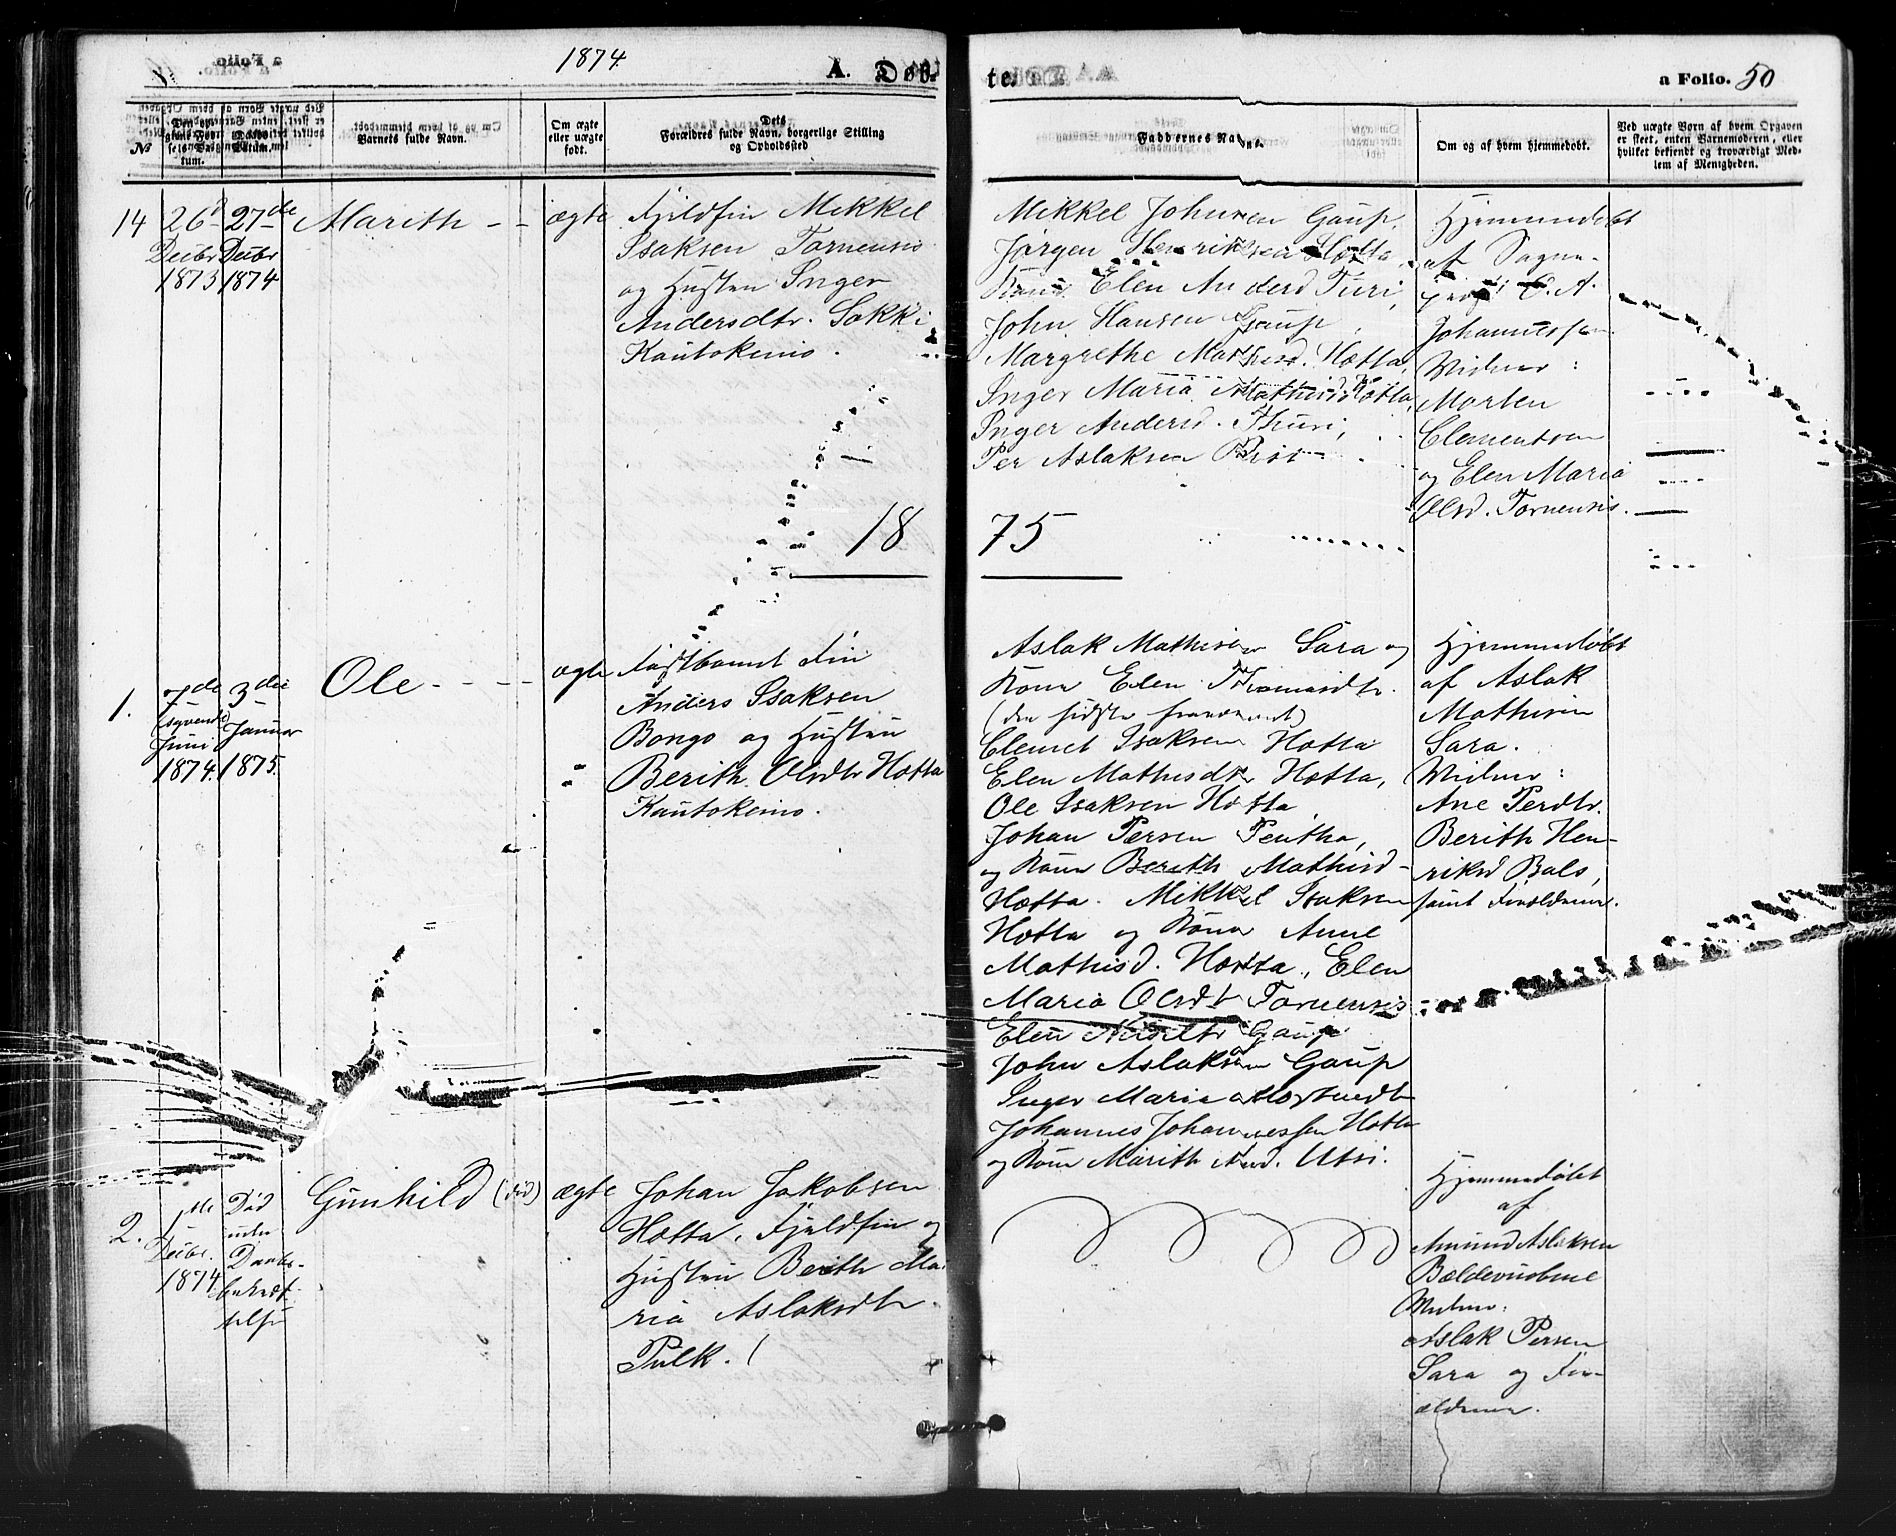 1874
A. Døb-
te.
a Folio. 50
№
Barnets fulde Navn.
Om ægte
eller uægte
født.
Dets
Forældres fulde Navn, borgerlige Stilling
og Opholdssted
Faddernes Navne.
Om og af hvem hjemmedøbt.
Ved uægte Børn af hvem Opgaven
er skeet, enten Barnemoderen, eller
hvilket bekjendt og troværdigt Med-
lem af Menigheden.
14
26de
Decbr
1873
27de
Decbr
1874
Marith - -
ægte
Fjeldfin Mikkel
Isaksen Tornensis
og Hustru Inger
Andersdtr. Sokki
Kautokeino.
Mikkel Johnsen Gaup,
Jørgen Henriksen Hætta,
Kone Elen Andersd Turi,
John Hansen Gaup,
Margrethe Mathisd. Hætta,
Inger Maria Mathisd Hotta,
Inger Andersd. Thuri,
Per Aslaksen
Hjemmedøbt
af Sogne-
præst O. A.
Johannessen
Vidner:
Morten
Clementsen
og Elen Maria
Olsd. Tornensis.
18 75
1.
7de
(syvende)
Juni
1874.
3die
Januar
1875.
Ole - - - -
ægte
Fastboend Fin
Anders Isaksen
Bongo og Hustru
Berith Olsdtr Hætta
Kautokeino.
Aslak Mathisen Sara og
Kone Elen Thomasdtr.
(den sidste fraværend)
Clemet Isaksen Hotta
Elen Mathisdtr Hætta,
Ole Isaksen Hotta
Johan Persen Pentha,
og Kone Berith Mathisd-
Hætta. Mikkel Isaksen
Hotta og Kone Anne
Mathisd. Hætta, Elen
Maria Olsdt Tornensis
Elen Nilsdtr Gaup
John Aslaksen Gaup
Inger Maria Mortensdtr
Johannes Johannessen Hotta
og Kone Marith Utsi.
Hjemmedøbt
af Aslak
Mathisen
Sara.
Vidner:
Ane Perdtr.
Berith Hen-
riksd Bals,
samt Forældrene.
2.
1ste
Decbr.
1874
Død
inden
Daabs-
bekræf-
telsen
Gunhild (død)
ægte
Johan Jakobsen
Hætta, Fjeldfin og
Hustru Berith Ma-
ria Aslaksdtr.
Pulk.
Hjemmedøbt
af
Amund Aslaksen
Bældevuobme
Vidner:
Aslak Persen
Sara og For-
ældrene.